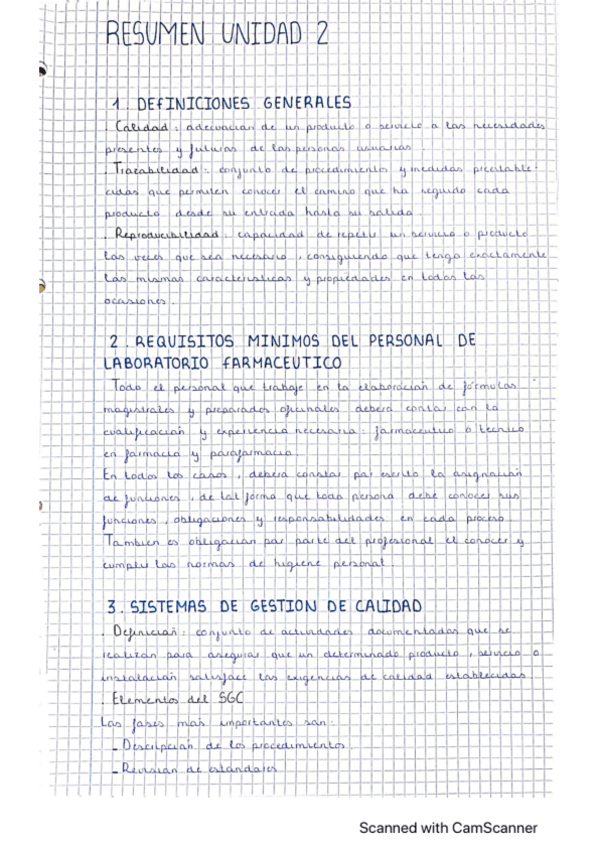 RESUMEN UNIDAD 2
1. DEFINICIONES GENERALES
. Calidad : adecuacian de un producto o servicio a las necesidades
presentes y futuras de las personas usuarias.
. Trazabilidad : conjunto de procedimientos y medidas preestable-
cidas que permiten conocer el camino que ha seguido cada
producto desde su entrada hasta su salida.
. Reproducibilidad : capacidad de repetir un servicio o producto
las veces que sea necesario, consiguiendo que tenga exactamente
las mismas características y propiedades en todas las
ocasiones.
2. REQUISITOS MINIMOS DEL PERSONAL DE
LABORATORIO FARMACEUTICO
Todo el personal que trabaje en la elaboración de fórmulas
magistrales y preparados oficinales deberá contar con la
cualificación y experiencia necesaria : farmaceutico o tecnico
en farmacia y parafarmacia.
En todos los casos, deberá constar por escrito la asignación
de funciones, de tal forma que toda persona debe conocer sus
funciones, obligaciones y responsabilidades en cada proceso.
Tambien es obligacian por parte del profesional el conocer y
cumplir las normas de higiene personal.
3. SISTEMAS DE GESTION DE CALIDAD
. Definician : conjunto de actividades documentadas que se
realizan para asegurar que un determinado producto, servicio o
instalacian satisface las exigencias de calidad establecidas
. Elementos del SGC
Las fases mas importantes son :
- Descripcian de los procedimientos.
- Revisian de estándares
Scanned with CamScanner